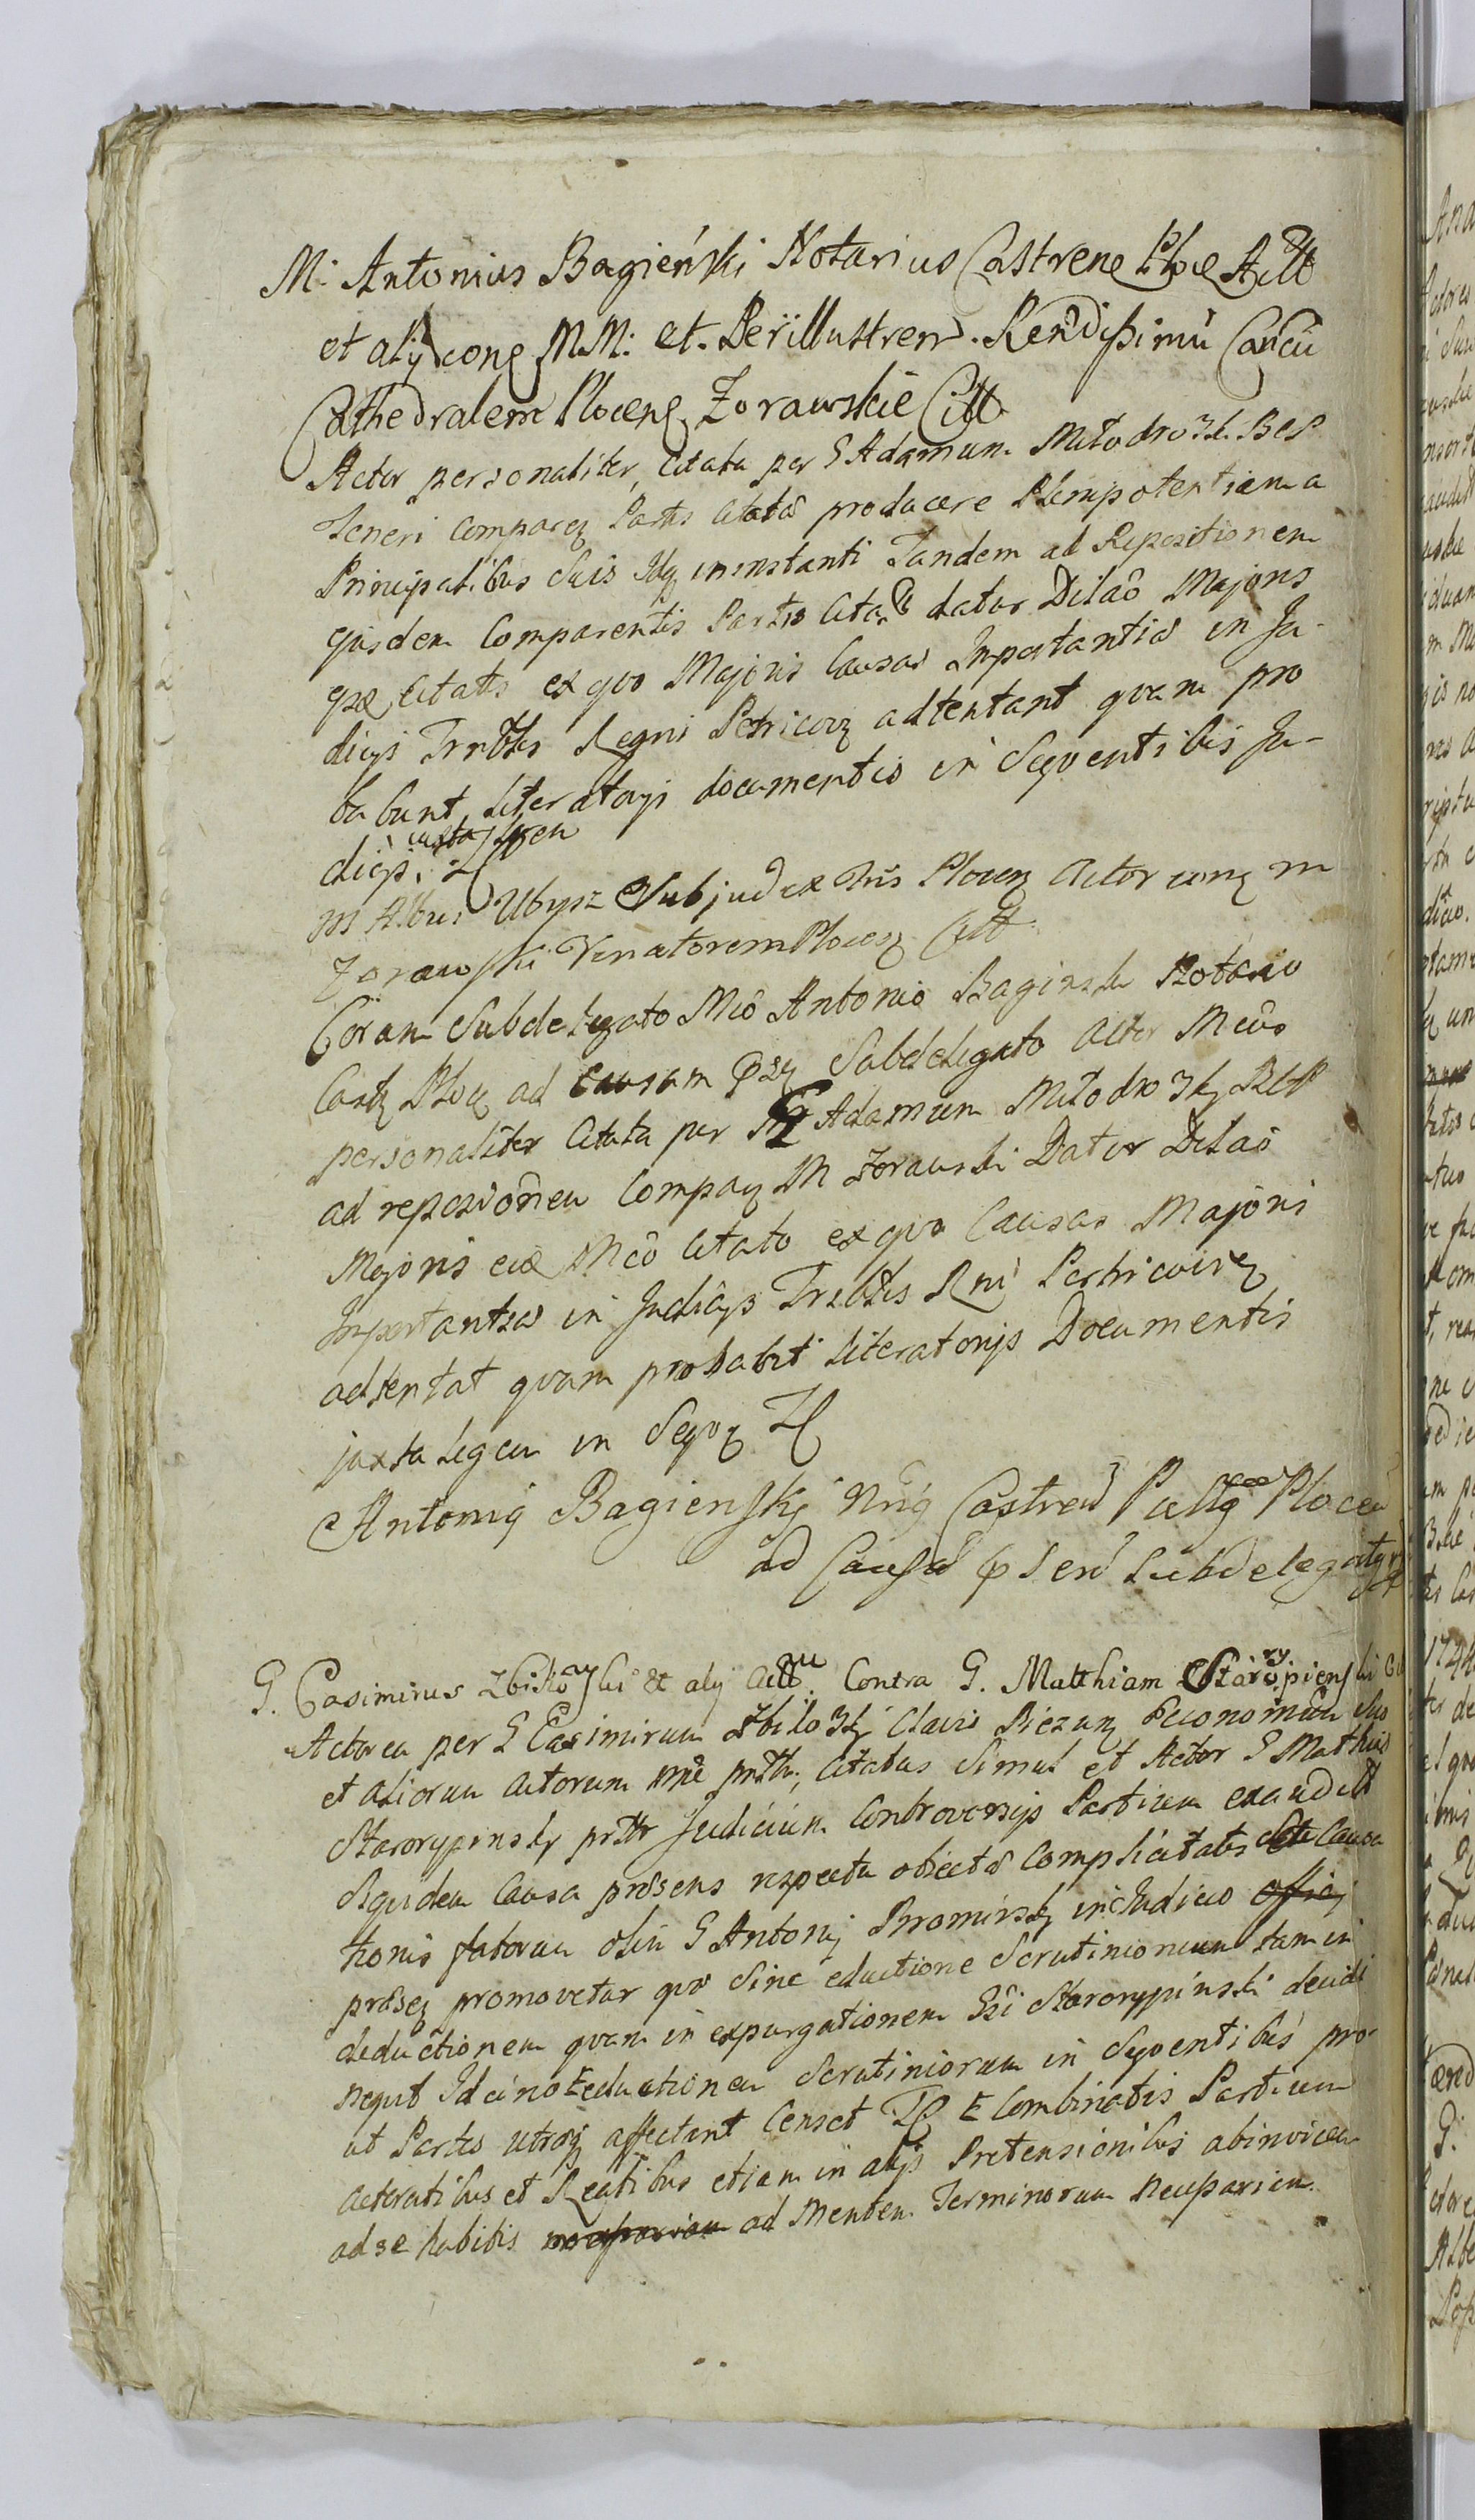 M: Antonius Bagieński Notarius Castrene Ploce Actt
et alÿ cong MM: et. Perillustrem. Rendissimū Canc̄u
Cathedralem Plocens Zorawskie Citt
Actor personaliter, Citata per G Adamum Młodrosk. Bel
Teneri Compareg Partis Citatæ producere Plenipotentiam a
Principalibus Suis Idq in instanti Tandem ad Repositionem
ejusdem Comparentis Partis Citatæ datur Dilao Majoris
Citatis ex quo Majoris Causas Importantiæ in Ju-
dicijs Trnblis Regni Petricov adtentant quam pro
babunt literatorijs documentis in Seqventibis Ju-
dicijs. juxta Legem
M Albus Ubysz Subjudex Tris Plocens Actor cong M
Zorawski Venatorem Plocens Citt
Coram Subdelegato Mco Antonio Baginski Notario
Castr Ploc ad Causam psz Subdelegato Actor Mcus
personaliter Citata per G Adamum Młodrosky Bel
ad repositionem Compar M Zorawski Datur Dilao
Majoris Mco Citato ex quo Causas Majoris
Importantiæ in Judicijs Tribblis Rni Petricoviens
adtentat quam probabit literatorijs Documentis
juxta legem in Seqvz
Antonig Bagiensky Nrig Castren Pallg Plocen
ad Causā psen Subdelegatg
G. Casimirus Zbikowski et alij Actt. Contra G. Matthiam Starorypienski Cit
Actorea per G Casimirum Zbikosky Clavis Biezunz Economum Suo
et aliorum Actorum nne prtr, Citatus Simul et Actor G Mathias
Starorypinsky prtr Judicium Controversijs Partium exauditt
Siquidem Causa præsens respectu obiectæ Complicitatis Causa
tionis fatorum olim G Antonij Bromirsky in Judicio officij
præseq promovetur quæ Sine eductione Scrutiniorum tam in
deductionem quam in expurgationem Gsi Starorypinski decidi
nequit Id circo Eductionem Scrutiniorum in Seqventibus pro-
ut Partes utraq affectant Censet E Combinatis Partium
Actoratibus et Reatibus etiam in alijs Pretensionibus abinvicem
ad se habitis ad Mentem Terminorum necuparium.